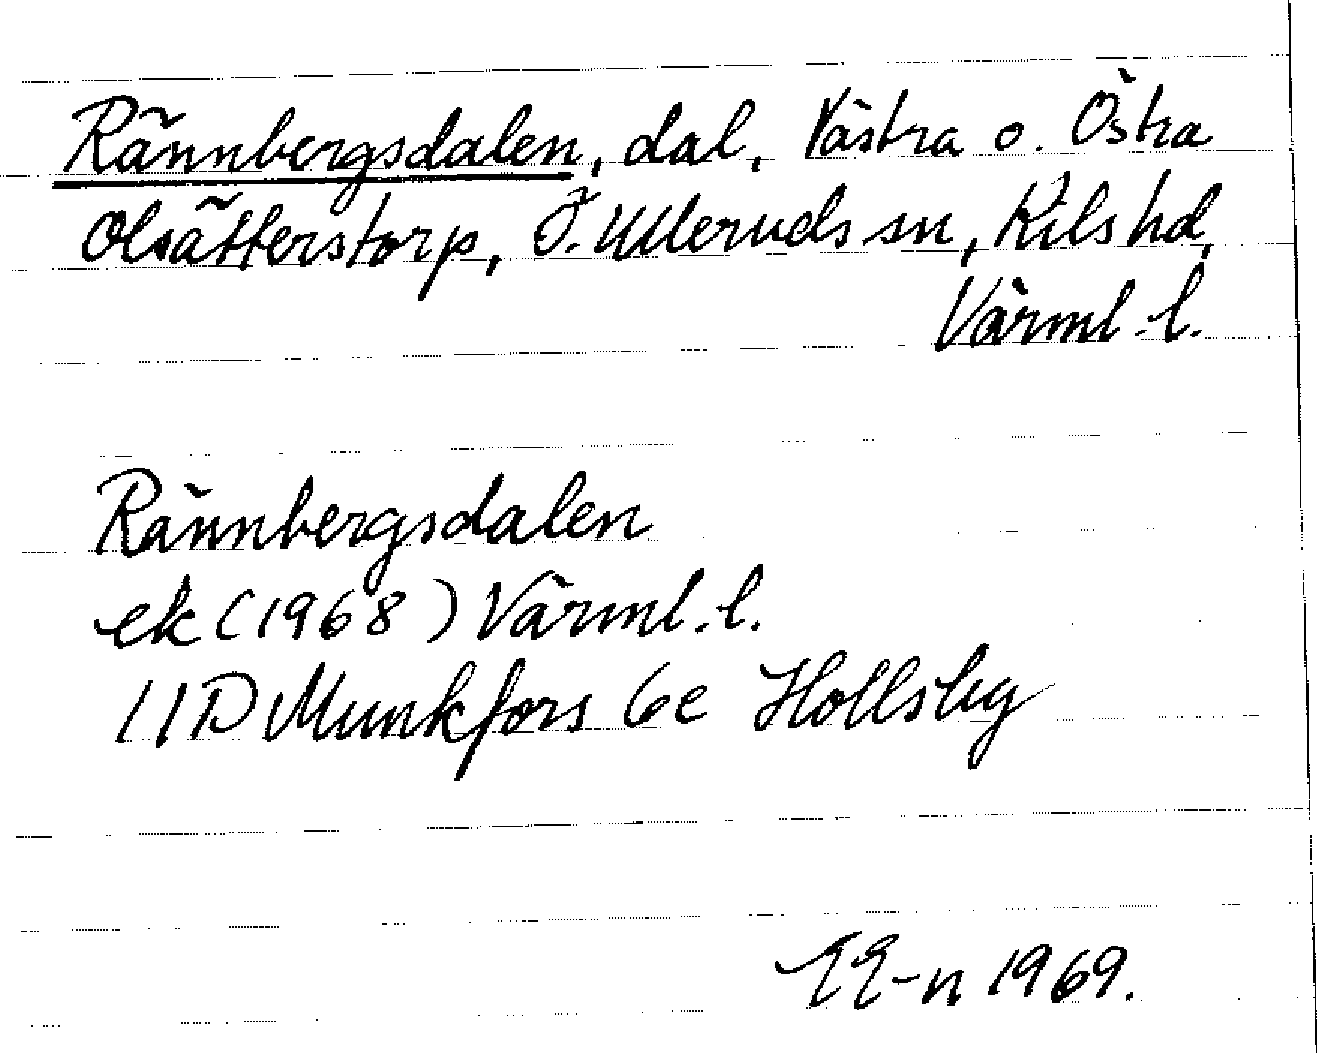 Rännbergsdalen, dal, Västra o. Östra
Olsätterstorp, Ö. Ulleruds sn, Kils hd,
Värml. l.
Rännbergsdalen
ek (1968) Värml. l.
11D Munkfors 6e Hollsby
EE-n 1969.